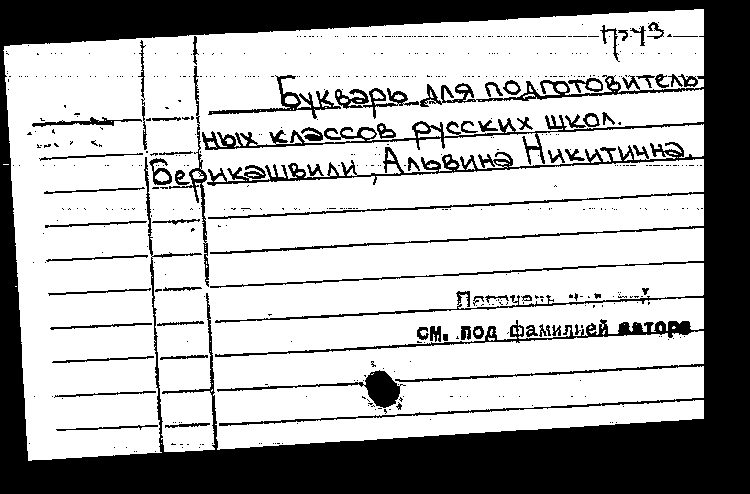 груз.
Букварь для подготовитель-
ных классов русских школ.
Берикашвили, Альвина Никитична.
см. под фамилией автора